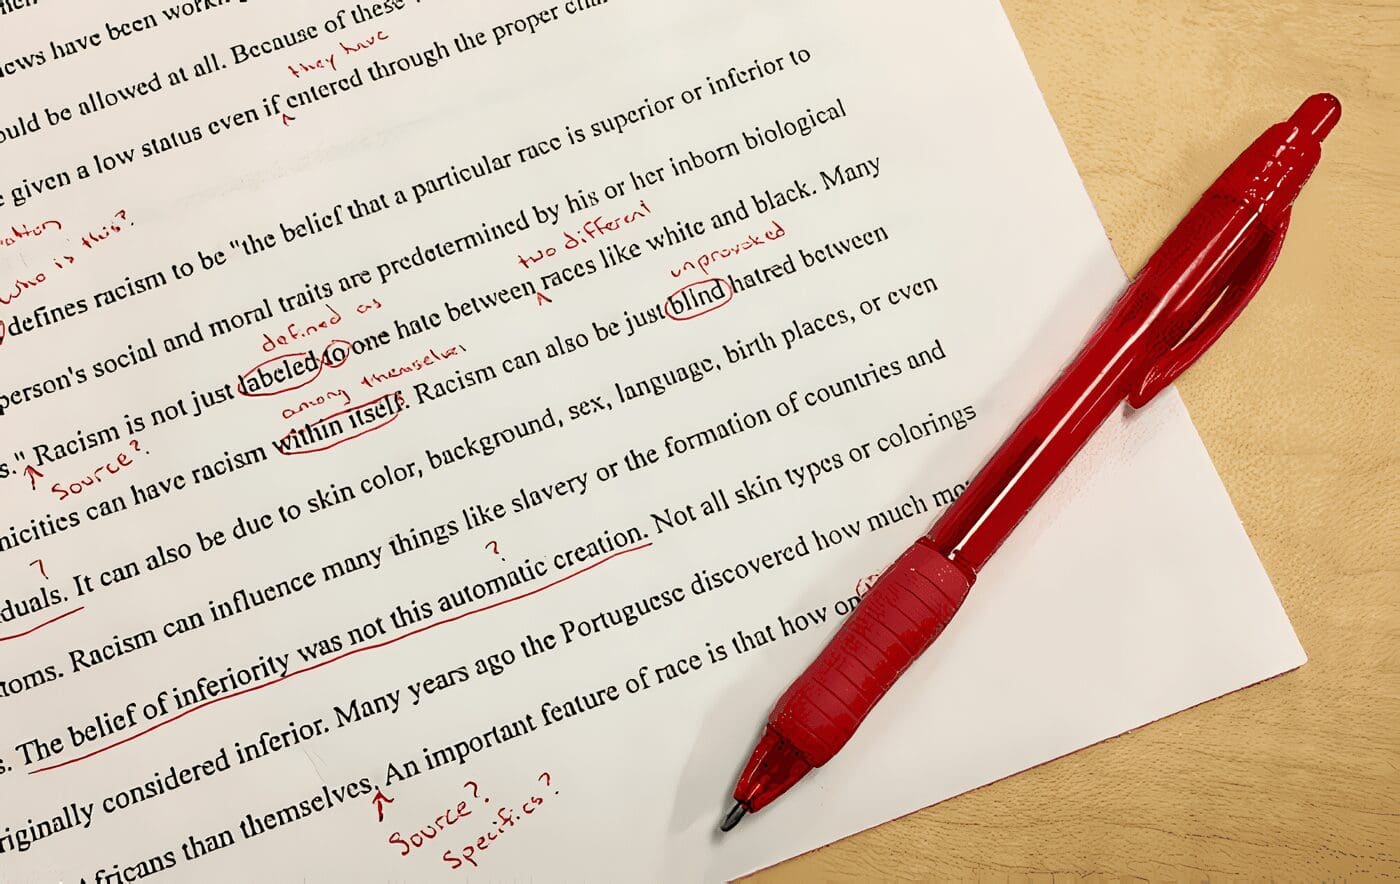 have been
they have
ould be allowed at all. Because of these
given a low status even if entered through the proper
who is this?
defines racism to be "the belief that a particular race is superior or inferior to
two different
person's social and moral traits are predetermined by his or her inborn biological
defined as
unprovoked
s." Racism is not just labeled to one hate between races like white and black. Many
Source?
among themselves
nicities can have racism within itself. Racism can also be just blind hatred between
?
duals. It can also be due to skin color, background, sex, language, birth places, or even
toms. Racism can influence many things like slavery or the formation of countries and
?
s. The belief of inferiority was not this automatic creation. Not all skin types or colorings
riginally considered inferior. Many years ago the Portuguese discovered how much
Africans than themselves. An important feature of race is that how
Source?
Specifics?